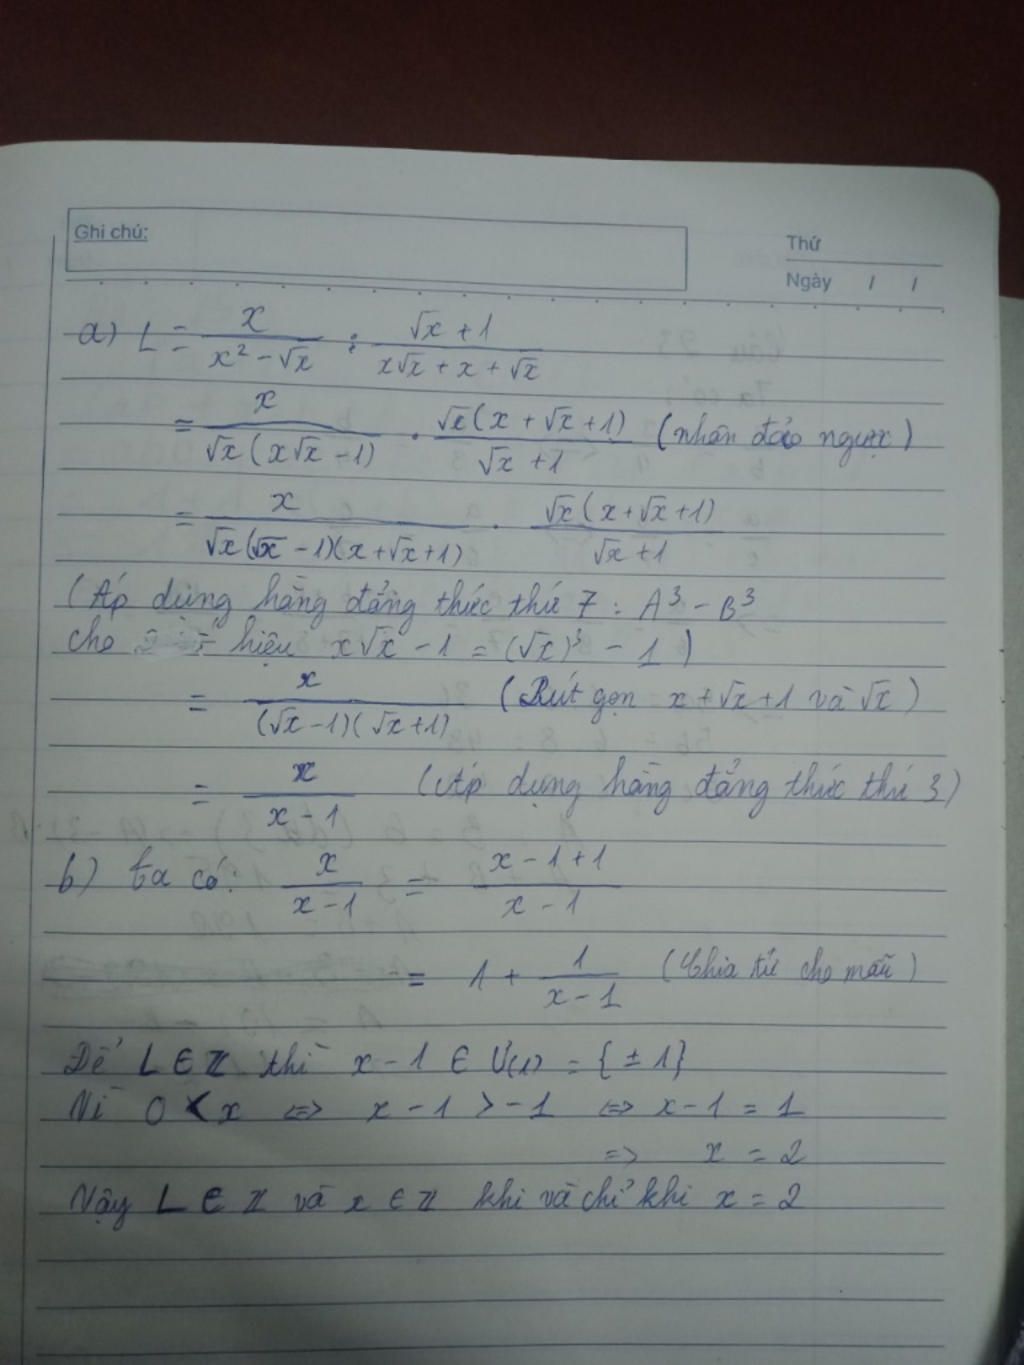 Ghi chú:
Thứ
Ngày / /
a) L = x / (x² - √x) : (√x + 1) / (x√x + x + √x)
= x / (√x(x√x - 1)) . √x(x + √x + 1) / (√x + 1) (nhân đảo ngược)
= x / (√x(√x - 1)(x + √x + 1)) . √x(x + √x + 1) / (√x + 1)
(Áp dụng hằng đẳng thức thứ 7 : A³ - B³
cho hiệu x√x - 1 = (√x)³ - 1)
= x / ((√x - 1)(√x + 1)) (Rút gọn x + √x + 1 và √x)
= x / (x - 1) (Áp dụng hằng đẳng thức thứ 3)
b) ta có: x / (x - 1) = (x - 1 + 1) / (x - 1)
= 1 + 1 / (x - 1) (Chia tử cho mẫu)
Để L ∈ ℤ thì x - 1 ∈ Ư(1) = {± 1}
Vì 0 < x <=> x - 1 > -1 <=> x - 1 = 1
=> x = 2
Vậy L ∈ ℤ và x ∈ ℤ khi và chỉ khi x = 2